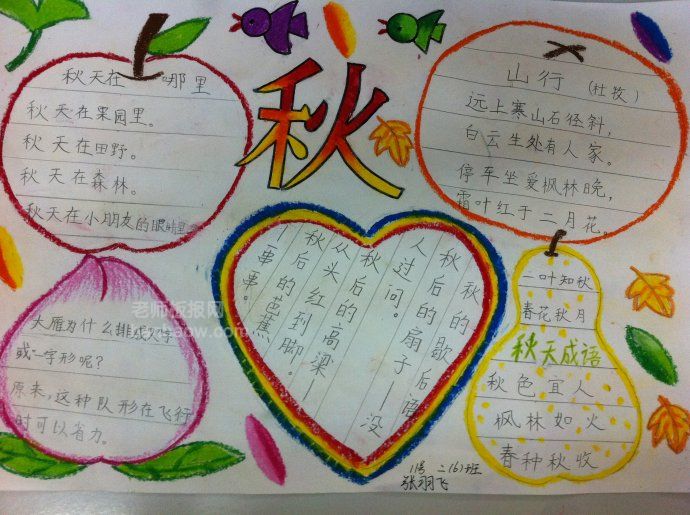 秋
秋天在哪里
秋天在果园里。
秋天在田野。
秋天在森林。
秋天在小朋友的眼睛里
山行 (杜牧)
远上寒山石径斜,
白云生处有人家。
停车坐爱枫林晚,
霜叶红于二月花。
大雁为什么排成人字
或一字形呢?
原来,这种队形在飞行
时可以省力。
秋的歇后语
秋后的扇子—没
人过问。
秋后的高梁—
从头红到脚。
秋后的芭蕉—
一串串。
一叶知秋
春花秋月
秋天成语
秋色宜人
枫林如火
春种秋收
11号 二(6)班
张翔飞
老师板报网